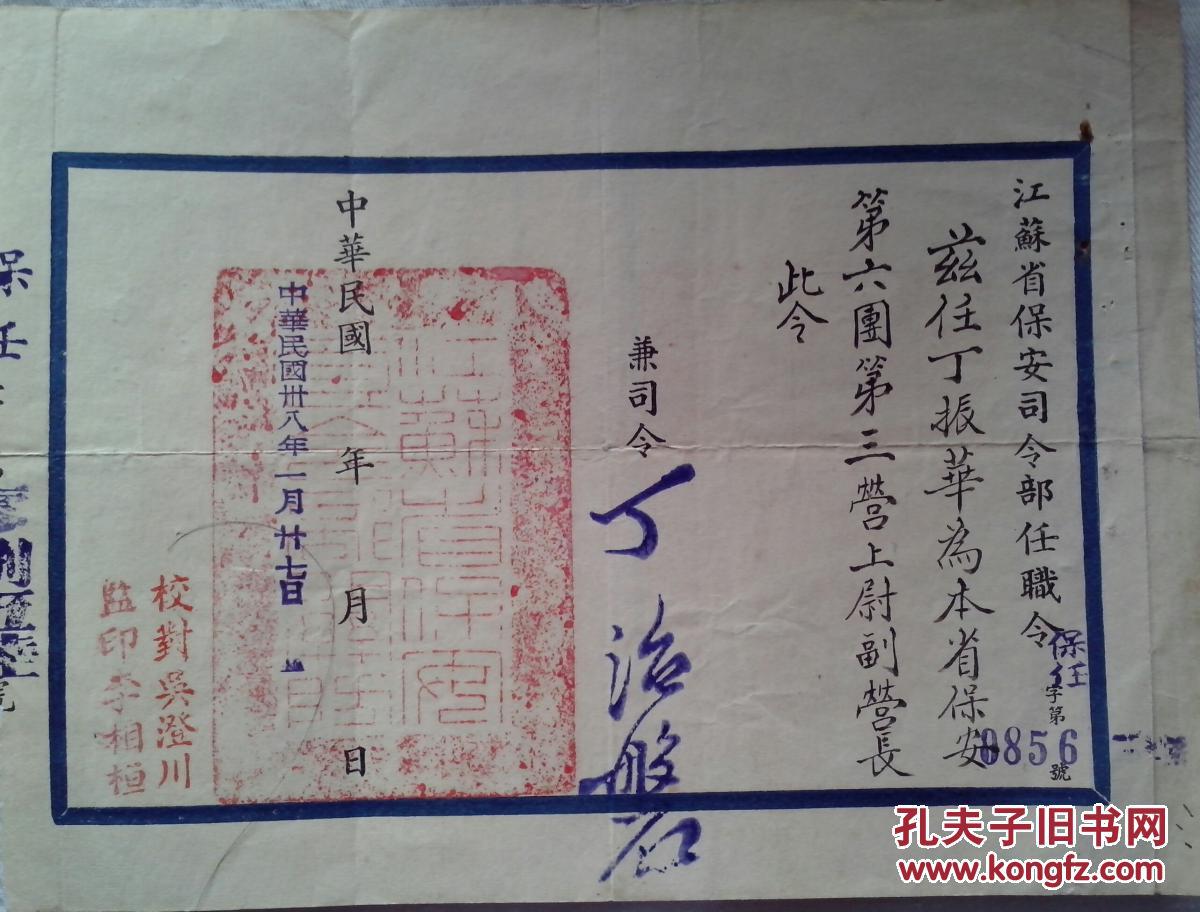 江蘇省保安司令部任職令
保任字第0856號
茲任丁振華為本省保安
第六團第三營上尉副營長
此令
兼司令 丁治磐
中華民國 年 月 日
中華民國卅八年一月廿七日
江蘇省保安
校對吳澄川
監印李相桓
保任
孔夫子旧书网
www.kongfz.com